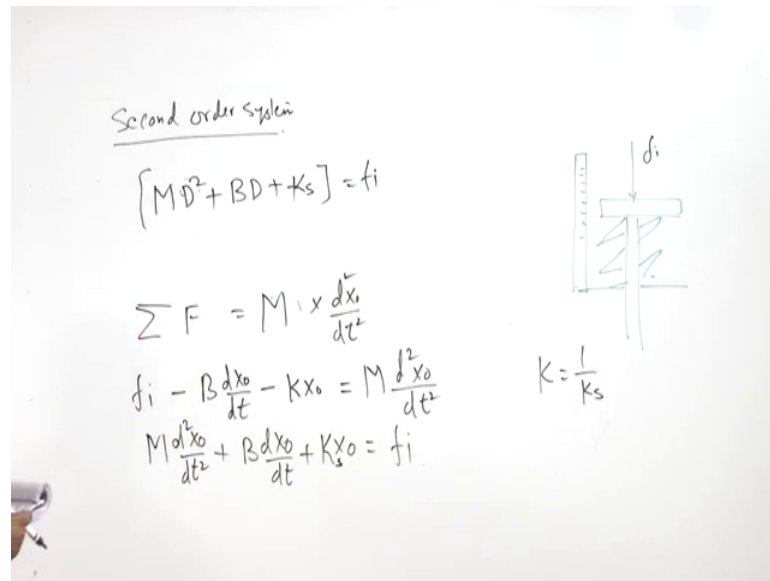 Second order system
[MD²+BD+Ks] = fi
fi
ΣF = M × d²x₀/dt²
fi - B dx₀/dt - Kx₀ = M d²x₀/dt²
K = 1/Ks
M d²x₀/dt² + B dx₀/dt + Ksx₀ = fi